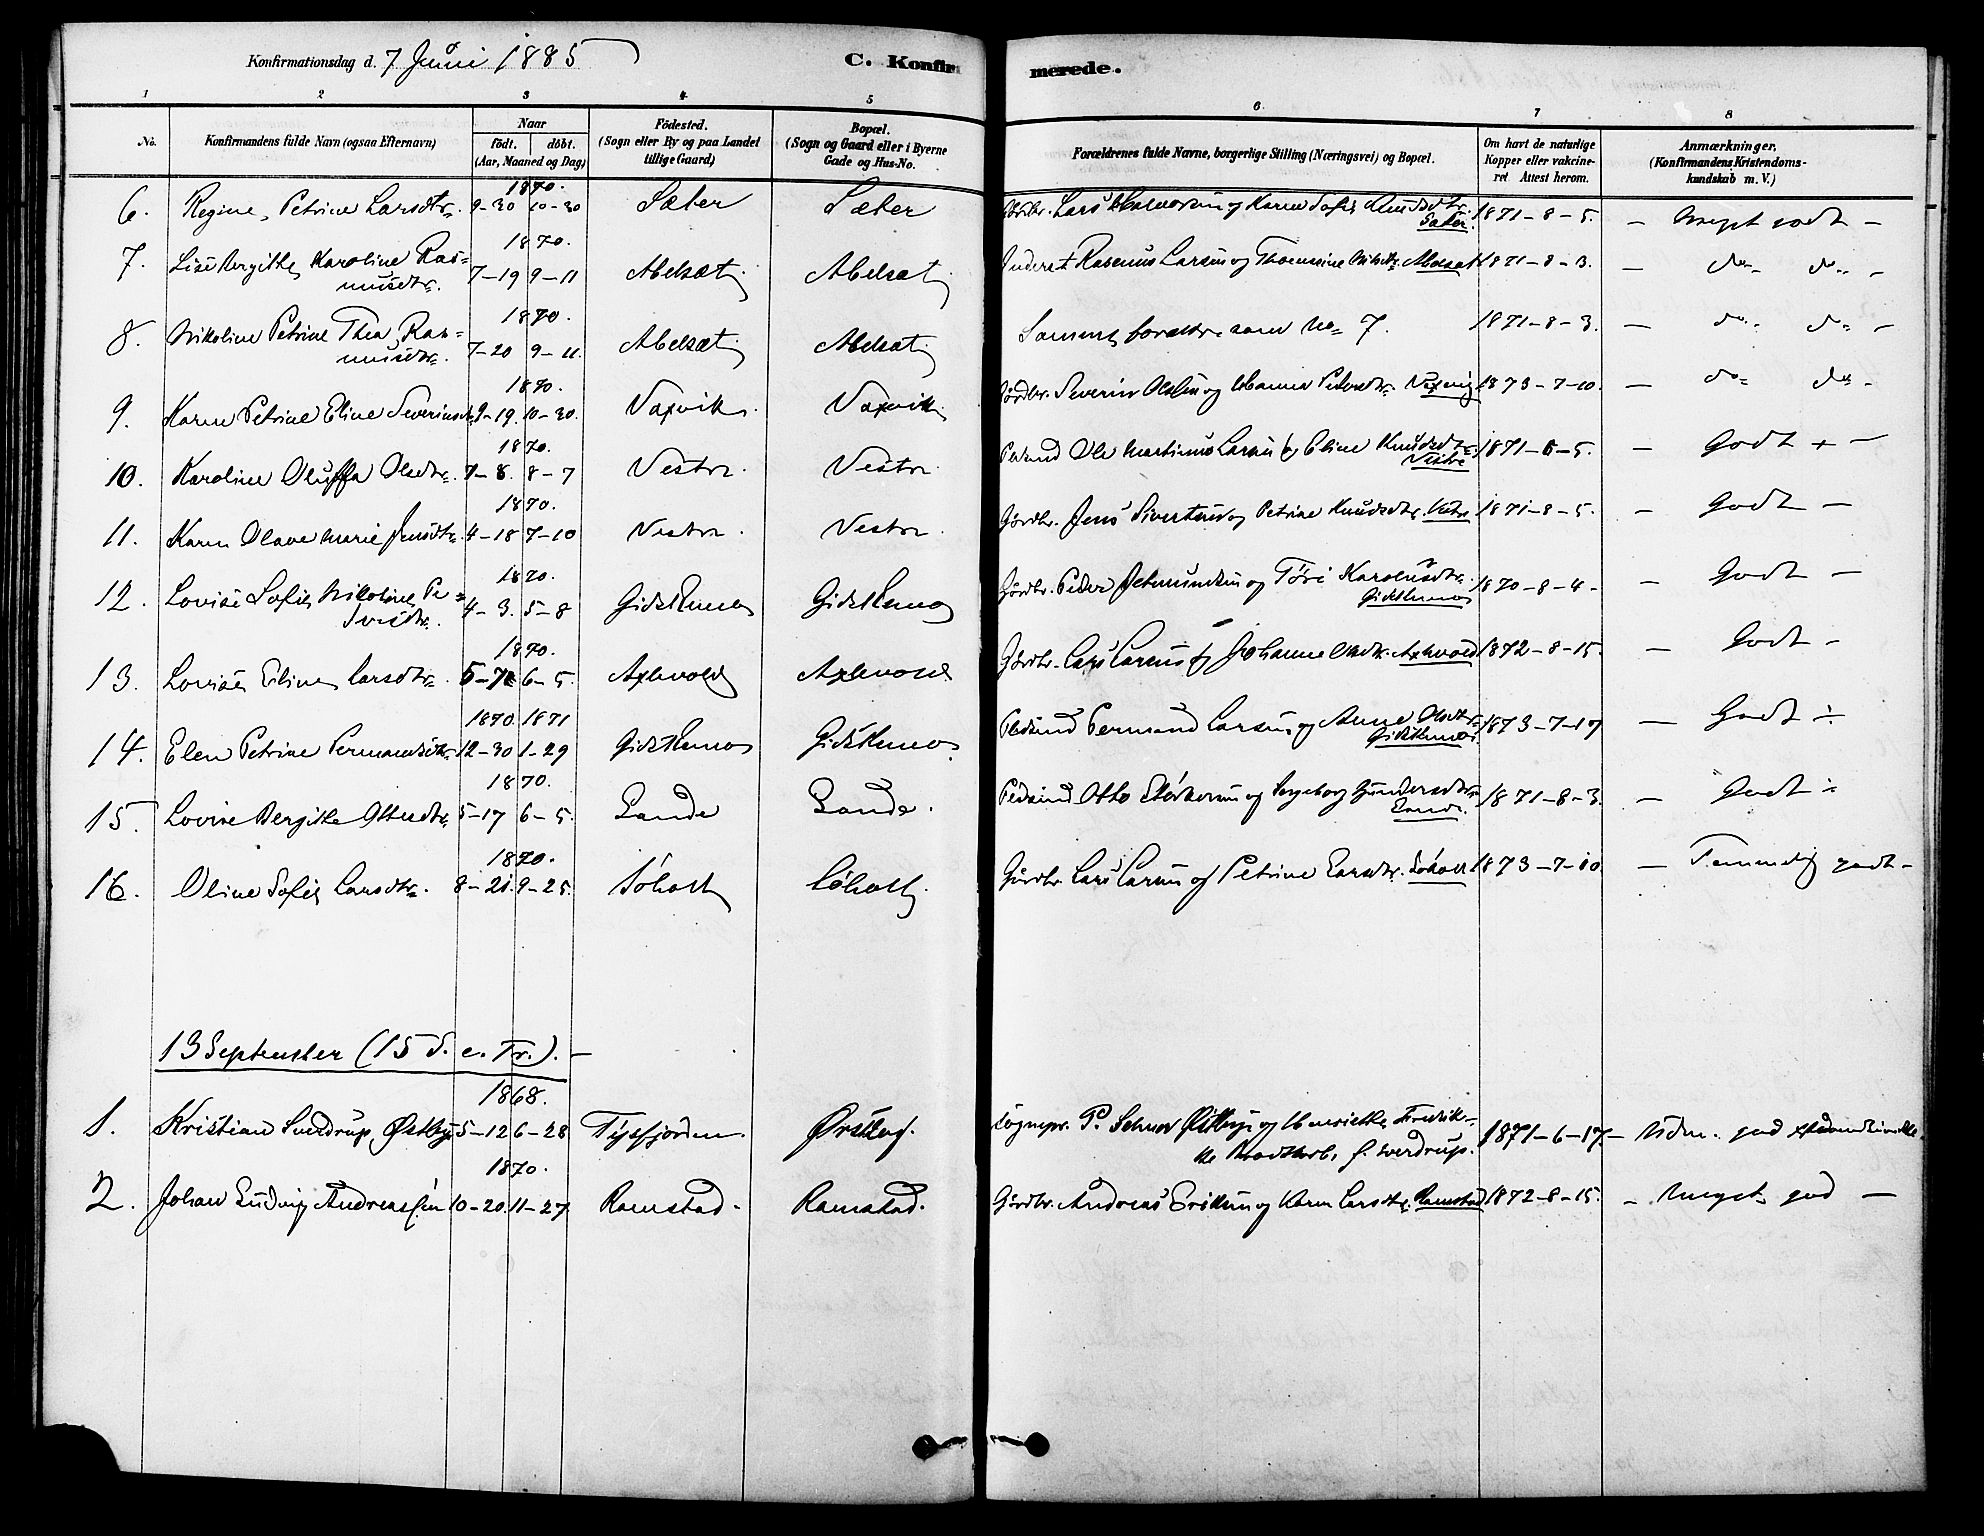 Konfirmationsdag d. 7 Juni 1885
C. Konfirmerede.
1 2 3 4 5 6 7 8
No.
Konfirmandens fulde Navn (ogsaa Efternavn)
Naar
født. døbt.
(Aar, Maaned og Dag)
Fødested.
(Sogn eller By og paa Landet
tillige Gaard)
Bopæl.
(Sogn og Gaard eller i Byerne
Gade og Hus-No.
Forældrenes fulde Navne, borgerlige Stilling (Næringsvei) og Bopæl.
Om havt de naturlige
Kopper eller vakcine-
ret. Attest herom.
Anmærkninger.
(Konfirmandens Kristendoms-
kundskab m. V.)
1870.
6. Regine Petrine Larsdtr. 9-30 10-30 Sæter Sæter Lars og Karen Sofie Knudsdtr. Sæter. 1871-8-5. - Meget godt -
1870.
7. Lise Bergitthe Karoline Ras-
musdtr. 7-19 9-11 Abelsæt Abelsæt Inderst Rasmus Larsen og Abelsæt 1871-8-3. - do do -
1870.
8. Nikoline Petrine Thea Ras-
musdtr. 7-20 9-11 Abelsæt Abelsæt Samme foreldre som No 7. 1871-8-3. - do do -
1870.
9. Karen Petrine Eline Severinsdtr. 9-19. 10-30. Vaxvik. Vaxvik Gårdbr. Severin Olsen og Hanna Petersdtr. Vaxvig 1873-7-10. - do do -
1870.
10. Karoline Oluffa Olsdtr. 7-8. 8-7 Vestre. Vestre. Ole Martinus Larsen & Eline Knudsdtr. Vestre 1871-8-5. - Godt + -
1870.
11. Karen Olave Marie Jensdtr. 4-18 7-10 Vestre. Vestre. Gårdbr. Jens Sivertsen og Petrine Knudsdtr. Vestre 1871-8-5. - Godt -
1870.
12. Lovise Sofie Nikoline Pe-
dersdtr. 4-3. 5-8 Gidskemo Gidskemo Gårdbr. Peder og Karolusdtr. Gidskemo 1870-8-4. - Godt -
1870.
13. Lovise Eline Larsdtr. 5-7 6-5. Axlevold Axlevold Gårdbr. Lars Larsen & Johanne Olsdtr. Axlevold 1872-8-15. - Godt -
1870. 1871
14. Elen Petrine Permandsdtr. 12-30 1-29 Gidskemo Gidskemo. Permand Larsen og Anne Olsdtr. Gidskemo. 1873-7-17 - Godt ÷
1870.
15. Lovise Bergitte Ottesdtr. 5-17 6-5. Lande Lande. Otto og Ingeborg Gundersdtr. Lande. 1871-8-3. - Godt ÷
1870.
16. Oline Sofie Larsdtr. 8-21. 9-25. Søholt Søholt. Gårdbr. Lars Larsen og Petrine Larsdtr. Søholt 1873-7-10. - Temmelig godt -
13 September (15 S. e. Tr.). -
1868.
1. Kristian Sverdrup Østbye 5-12 6-28 Tysfjorden. Ørskog. Sognepr. P. Østbye og Henriette Fredrik-
ke f. Sverdrup. 1871-6-17. -
1870.
2. Johan Ludvig Andreassen 10-20. 11-27 Ramstad. Ramstad. Gårdbr. Andreas Eriksen og Karen Larsdtr. Ramstad 1872-8-15. - Meget god -